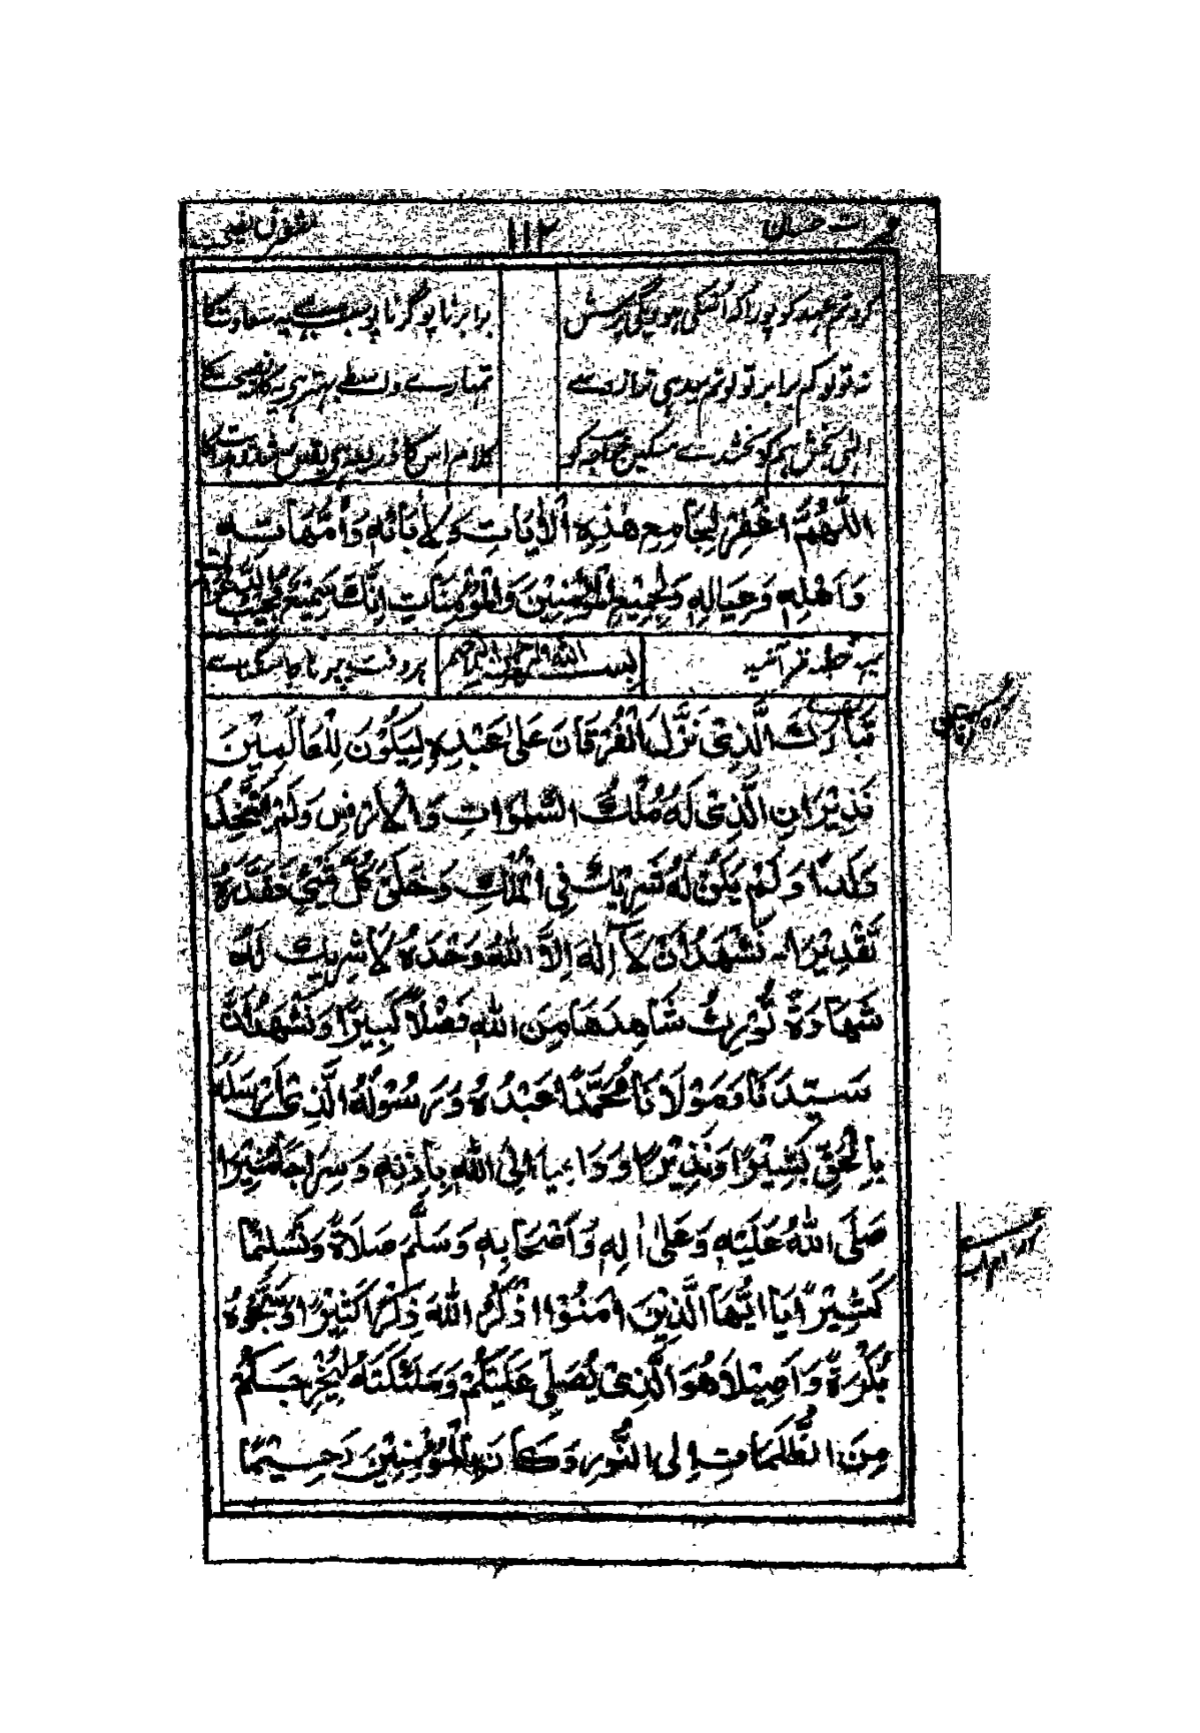 ۱۱۲
کرو تم عہد کو پورا کہ اسکی ہوویگی پرسش
برابر ناپو گر ناپو سبب ہے یہ سعادت کا
نہ تولو کم برابر تولو تم سیدہی ترازو سے
تمہارے واسطے بہتر ہی یہ کلمہ نصیحت کا
الٰہی بخش ہم کو بخشدے مسکین خواجہ کو
کلام اس کا ذریعہ ہی
اللّٰهُمَّ اغْفِرْ لِجَامِعِ هٰذِهِ الْاٰيَاتِ وَلِاٰبَائِهِ وَاُمَّهَاتِهِ
وَاَهْلِهِ وَعِيَالِهِ وَلِجَمِيْعِ الْمُؤْمِنِيْنَ وَالْمُؤْمِنَاتِ اِنَّكَ سَمِيْعٌ مُجِيْبُ الدَّعَوَاتِ
یہ خطبہ قرآنیہ
بسم الله الرحمن الرحيم
ہر وقت پڑنا جا سکتا ہے
تَبَارَكَ الَّذِىْ نَزَّلَ الْفُرْقَانَ عَلٰى عَبْدِهٖ لِيَكُوْنَ لِلْعَالَمِيْنَ
نَذِيْرَانِ الَّذِىْ لَهُ مُلْكُ السَّمٰوَاتِ وَالْاَرْضِ وَلَمْ يَتَّخِذْ
وَلَدًا وَلَمْ يَكُنْ لَهُ شَرِيْكٌ فِى الْمُلْكِ وَخَلَقَ كُلَّ شَىْءٍ فَقَدَّرَهُ
تَقْدِيْرًا نَشْهَدُ اَنْ لَا اِلٰهَ اِلَّا اللهُ وَحْدَهُ لَا شَرِيْكَ لَهُ
شَهَادَةً تُوْرِثُ شَاهِدَهَا مِنَ اللهِ فَضْلًا كَبِيْرًا وَنَشْهَدُ اَنَّ
سَيِّدَنَا وَمَوْلَانَا مُحَمَّدًا عَبْدُهُ وَرَسُوْلُهُ الَّذِىْ اَرْسَلَهُ
بِالْحَقِّ بَشِيْرًا وَنَذِيْرًا وَدَاعِيًا اِلَى اللهِ بِاِذْنِهٖ وَسِرَاجًا مُنِيْرًا
صَلَّى اللهُ عَلَيْهِ وَعَلٰى اٰلِهٖ وَاَصْحَابِهٖ وَسَلَّمَ صَلَاةً وَتَسْلِيْمًا
كَثِيْرًا يَا اَيُّهَا الَّذِيْنَ اٰمَنُوْا اذْكُرُوا اللهَ ذِكْرًا كَثِيْرًا وَسَبِّحُوْهُ
بُكْرَةً وَاَصِيْلًا هُوَ الَّذِىْ يُصَلِّىْ عَلَيْكُمْ وَمَلٰئِكَتُهُ لِيُخْرِجَكُمْ
مِنَ الظُّلُمَاتِ اِلَى النُّوْرِ وَكَانَ بِالْمُؤْمِنِيْنَ رَحِيْمًا